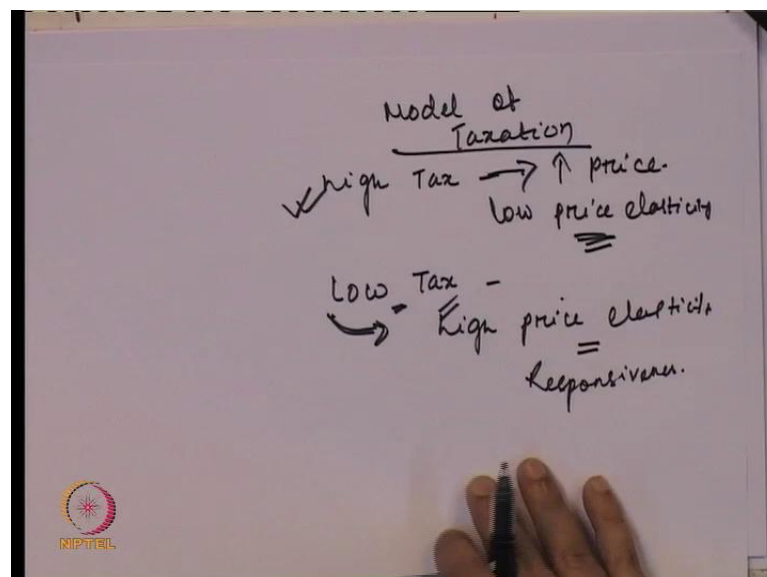 Model of
Taxation
high Tax → ↑ price.
low price elasticity
Low Tax -
high price elasticity
Responsiveness.
NPTEL